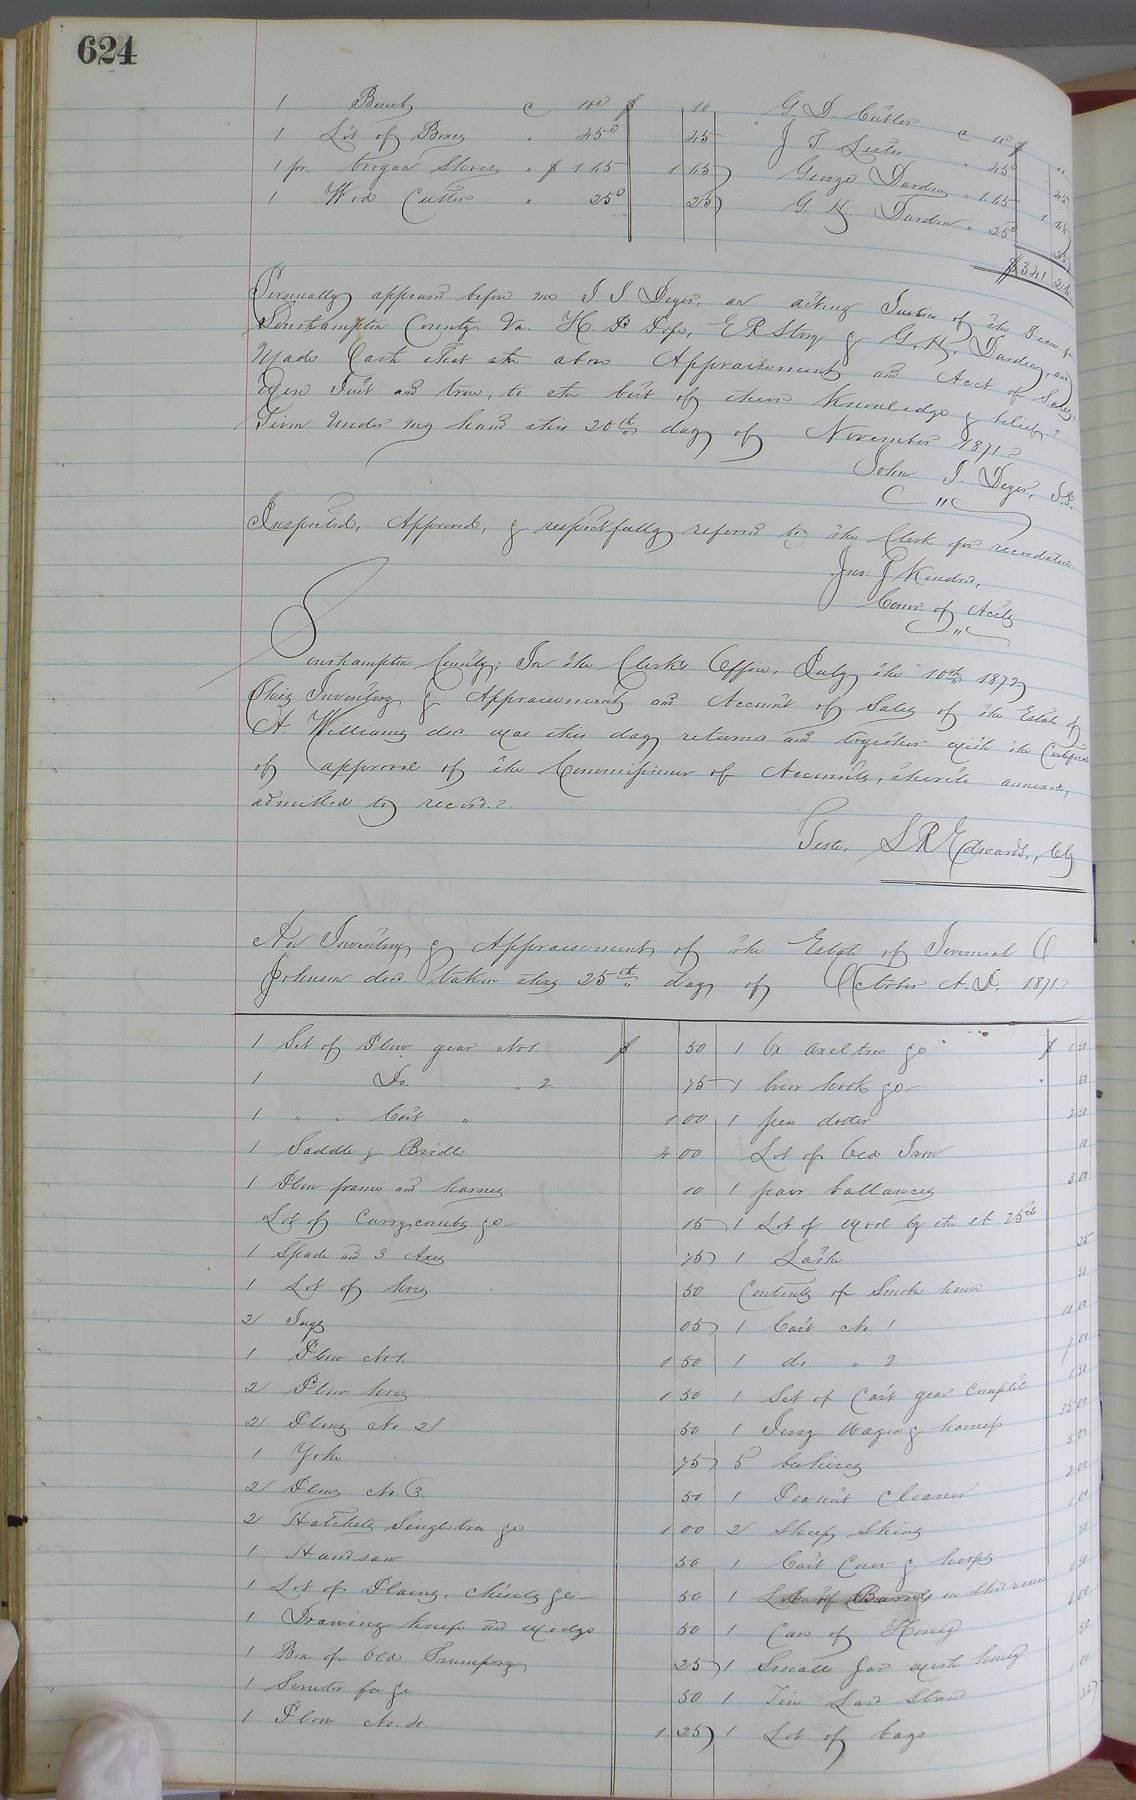 624
1 Bench @ 10c $ 10 G. D. Cutler @ 10c $ 10
1 Lot of Boxes " 45c 45 J T Lester " 45c 45
1 pr. brogan Shoes " $1.65 1 65 George Darden " 1.65 1 65
1 Wed Cutter " 25c 25 G. H. Darden " 25c 25
$341
Personally appeared before me J. J. Deyer, an acting Justice of the Peace of
Southampton County Va. H. P. Pope, E R Story & G. H. Darden, and
Made Oath that the above Appraisement and Acct of Sales
Were Just and true, to the best of their knowledge & belief.
Given Under my hand this 20th day of November 1871.
John J. Deyer, J.P.
Inspected, Approved, & respectfully referred to the Clerk for recordation.
Jno. J Kindred,
Comr. of Accts
Southampton County; In the Clerk's Office, July the 10th 1872
This Inventory & Appraisement and Account of Sales of the Estate of
A. Williams decd. was this day returned and together with the Certificate
of approval of the Commissioner of Accounts, thereto annexed,
admitted to record.
Teste, L R Edwards, Clk
An Inventory & Appraisement of the Estate of Jeremiah O
Johnson decd. taken this 25th day of October A.D. 1871.
1 Set of Plow gear No 1. $ 50 1 Ox axeltree &c $ 1 50
1 Do. " 2 75 1 brier hook &c 50
1 " " Cart " 1 00 1 pea 2 50
1 Saddle & Bridle 4 00 Lot of Old Iron
1 Plow frame and harness 10 1 pair ballances 3 00
Lot of Currycombs &c 15 1 Lot of wood by the at 25cts
1 Spade and 3 Axes 75 1 Lathe 25
1 Lot of hoes 50 Contents of Smoke house
2 Jugs 05 1 Cart No 1
1 Plow No 1. 1 50 1 do " 2
2 Plow hoes 1 50 1 Set of Cart gear complete 1 50
2 Plows No 2 50 1 Jersy Wagon & harness 35 00
1 Yoke 75 5 5 00
2 Plows No. 3 50 1 Peanut cleaner 2 00
2 Hatchets Singletree &c 1 00 2 Sheep Skins
1 Handsaw 50 1 Cart Cover & hoops 50
1 Lot of Plains, chisels &c 50 1 Lot of Barrels in
1 Drawing knife and wedge 50 1 Case of Honey
1 Box of Old Trumpery 25 1 Small Jar with honey 50
1 &c 50 1 Tin Lard Stand
1 Plow No. 4. 1 25 1 Lot of bags 25